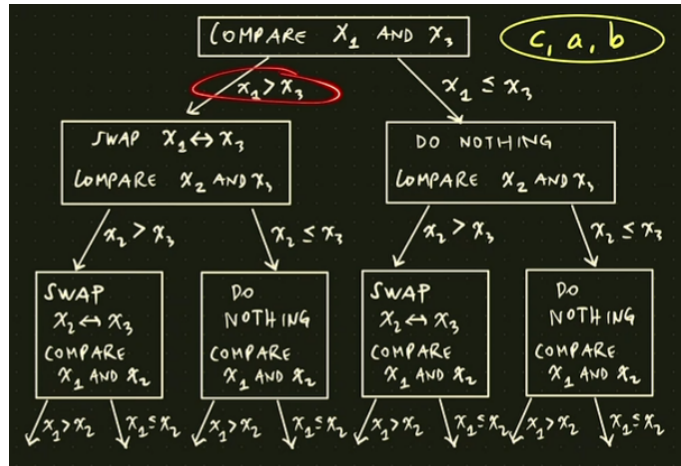 COMPARE X₁ AND X₃
c, a, b
X₁ > X₃
X₁ ≤ X₃
SWAP X₁ ↔ X₃
COMPARE X₂ AND X₃
DO NOTHING
COMPARE X₂ AND X₃
X₂ > X₃
X₂ ≤ X₃
X₂ > X₃
X₂ ≤ X₃
SWAP
X₂ ↔ X₃
COMPARE
X₁ AND X₂
DO
NOTHING
COMPARE
X₁ AND X₂
SWAP
X₂ ↔ X₃
COMPARE
X₁ AND X₂
DO
NOTHING
COMPARE
X₁ AND X₂
X₁ > X₂
X₁ ≤ X₂
X₁ > X₂
X₁ ≤ X₂
X₁ > X₂
X₁ ≤ X₂
X₁ > X₂
X₁ ≤ X₂